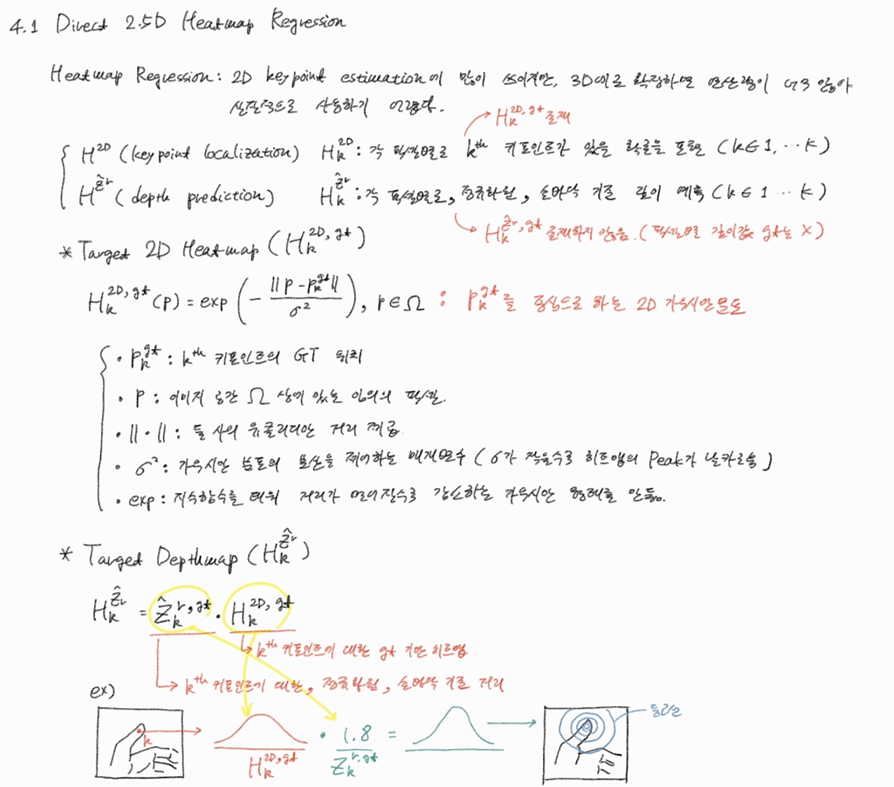 4.1 Direct 2.5D Heatmap Regression
Heatmap Regression: 2D keypoint estimation에 많이 쓰이지만, 3D로 확장하면 연산량이 너무 많아
실질적으로 사용하기 어렵다.
H_k^{2D,gt} 존재
H^{2D} (keypoint localization) H_k^{2D}: 각 픽셀별로 k^{th} 키포인트가 있을 확률을 표현 (k∈1, ··· K)
H^{\hat{Z}^r} (depth prediction) H_k^{\hat{Z}^r}: 각 픽셀별로, 정규화된, 손바닥 기준 깊이 예측 (k∈1 ··· K)
H_k^{\hat{Z}^r,gt} 존재하지 않음. (픽셀별 깊이값 gt는 X)
* Target 2D Heatmap (H_k^{2D,gt})
H_k^{2D,gt}(p) = exp(-\frac{||p-p_k^{gt}||}{σ^2}), p∈Ω : p_k^{gt}를 중심으로 하는 2D 가우시안분포
• p_k^{gt}: k^{th} 키포인트의 GT 위치
• p: 이미지 공간 Ω 상에 있는 임의의 픽셀.
• ||·||: 둘 사이 유클리디안 거리 제곱
• σ^2: 가우시안 분포의 분산을 제어하는 매개변수 (σ가 작을수록 히트맵의 Peak가 날카로움)
• exp: 지수함수를 태워 거리가 멀어질수록 감소하는 가우시안 형태를 만듦.
* Target Depthmap (H_k^{\hat{Z}^r})
H_k^{\hat{Z}^r} = \hat{Z}_k^{r,gt} · H_k^{2D,gt}
k^{th} 키포인트에 대한 gt 기반 히트맵
k^{th} 키포인트에 대한, 정규화된, 손바닥 기준 거리
ex)
k
H_k^{2D,gt}
· 1.8 =
Z_k^{r,gt}
등고선